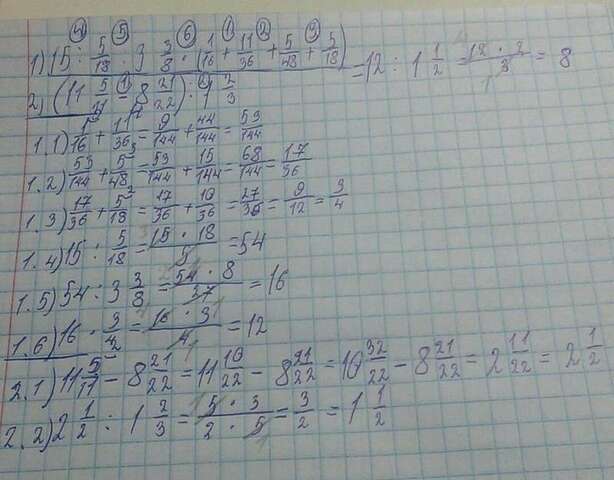 ④ ⑤ ⑥ ① ② ③
1) 15 : 5/18 : 3 3/8 · (1/16 + 11/36 + 5/48 + 5/18) = 12 : 1 1/2 = 12 · 2/3 = 8
2) (11 5/11 - 8 21/22) : 1 2/3
1.1) 1/16 + 11/36 = 9/144 + 44/144 = 53/144
1.2) 53/144 + 5/48 = 53/144 + 15/144 = 68/144 = 17/36
1.3) 17/36 + 5/18 = 17/36 + 10/36 = 27/36 = 9/12 = 3/4
1.4) 15 : 5/18 = 15 · 18/5 = 54
1.5) 54 : 3 3/8 = 54 · 8/27 = 16
1.6) 16 · 3/4 = 16 · 3/4 = 12
2.1) 11 5/11 - 8 21/22 = 11 10/22 - 8 21/22 = 10 32/22 - 8 21/22 = 2 11/22 = 2 1/2
2.2) 2 1/2 : 1 2/3 = 5 · 3/2 · 5 = 3/2 = 1 1/2